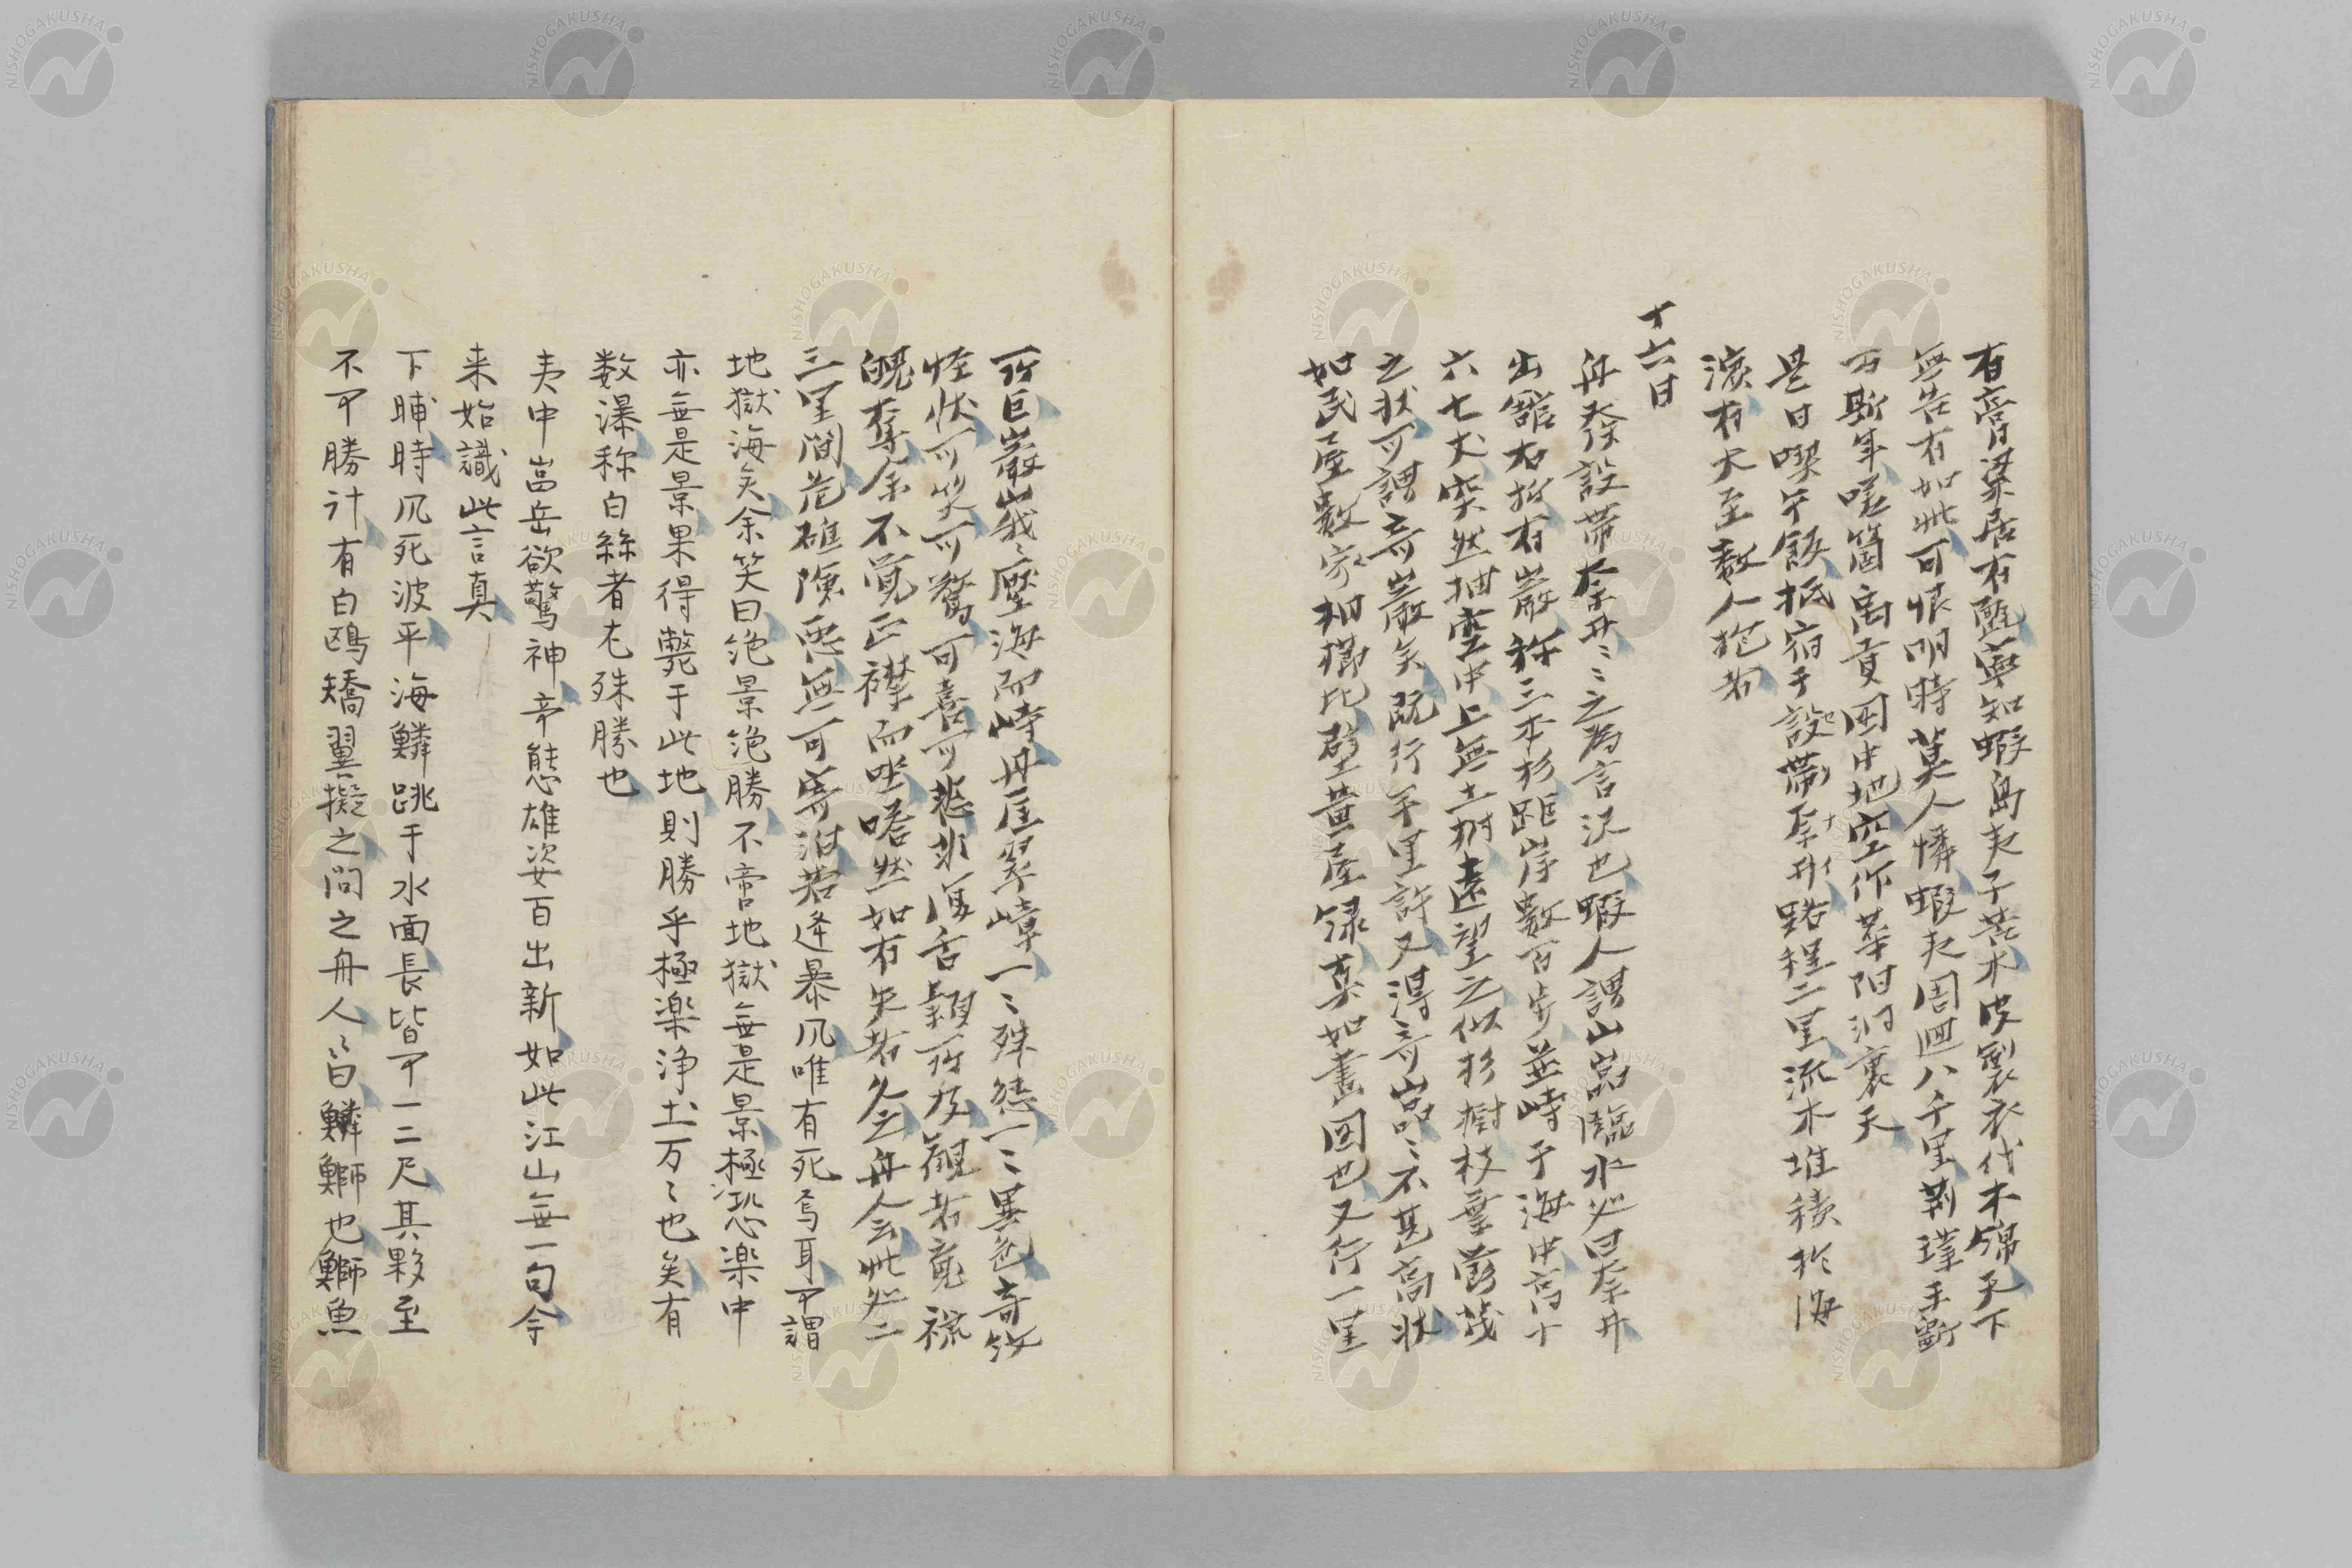 有膏梁居有甌寧知蝦島夷子苦木皮製衣代木綿天下
無告有如此可恨明時莫人憐蝦夷周廻八千里荊璞未斷
万斯年嗟箇禹貢図中地空作華陽洞裏天
是日喫午飯抵宿于設帯奈井路程二里流木堆積於海
濱有大至数人抱者
十六日
舟発設帯奈井ミ之為言沢也蝦人謂山岩臨水必曰奈井
出館右折有巌称三本杉距岸数百歩並峙于海中高十
六七丈突然抽空中上無土樹遠望之似杉樹枝葉蓊茂
之状可謂奇巌矣既行半里許又得奇岩ミ不甚高状
如民屋数家相櫛比壁黄屋緑真如畫図也又行一里
所巨巌峩ミ壓海而峙丹厓翠嶂一ミ殊態一ミ異色奇紋
怪状可笑可驚可喜可悲非復舌頴所及観者竟褫
魄奪余不覚正襟而坐嗒然如有失者久之舟人云此処二
三里間荒礁険悪無可寄泊若逢暴凨唯有死焉耳可謂
地獄海矣余笑曰絶景絶勝不啻地獄無是景極恐楽中
亦無是景果得斃于此地則勝乎極楽浄土万ミ也矣有
数瀑称白絲者尤殊勝也
夷中嵓岳欲驚神帝態雄姿百出新如此江山無一句今
来始識此言真
下晡時凨死波平海鱗跳于水面長皆可一二尺其夥至
不可勝計有白鴎矯翼擬之問之舟人ミ曰鱗鰤也鰤魚